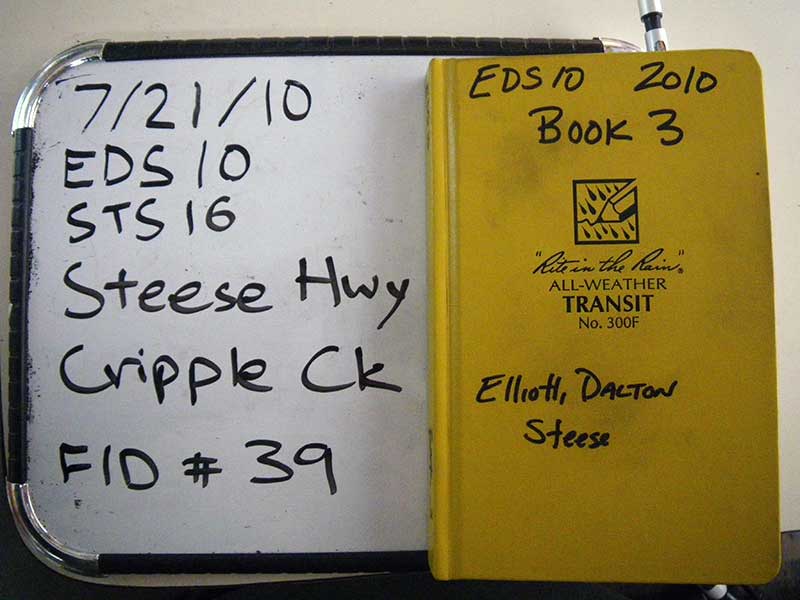 7/21/10
EDS 10
STS 16
Steese Hwy
Cripple Ck
FID # 39
EDS 10 2010
BOOK 3
"Rite in the Rain"®
ALL-WEATHER
TRANSIT
No. 300F
Elliott, DALTON
Steese